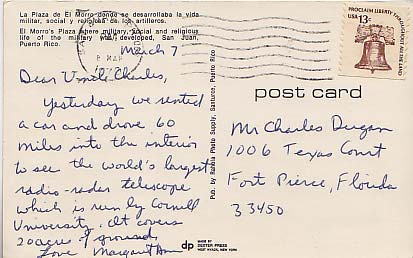 La Plaza de El Morro donde se desarrollaba la vida
militar, social y religiosa de los artilleros.
El Morro's Plaza where military, social and religious
life of the military was developed, San Juan,
Puerto Rico.
March 7
Dear Uncle Charles,
Yesterday we rented
a car and drove 60
miles into the interior
to see the world's largest
radio-radar telescope
which is run by Cornell
University. It covers
20 acres of ground.
Love Margaret Ann
Pub. by Rahola Photo Supply, Santurce, Puerto Rico
dp
MADE BY
DEXTER PRESS
WEST NYACK, NEW YORK
PROCLAIM LIBERTY THROUGHOUT ALL THE LAND
USA 13c
post card
Mr Charles Dugan
1006 Texas Court
Fort Pierce, Florida
33450